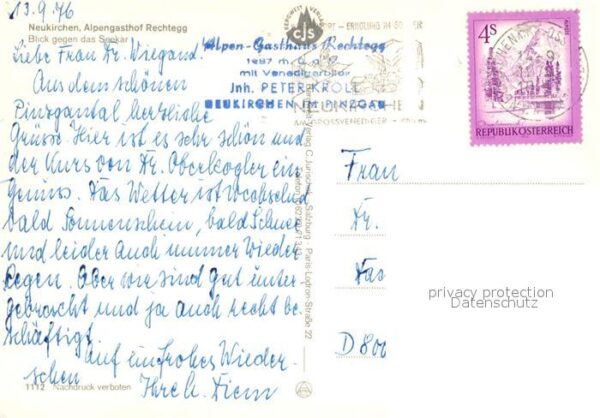 13.9.76
Neukirchen, Alpengasthof Rechtegg
Blick gegen das Seekar
Liebe Frau Dr. Wiegand!
Aus dem schönen
Pinzgautal herzliche
Grüsse. Hier ist es sehr schön und
der Kurs von Dr. Oberkogler ein
Genuss. Das Wetter ist wechselnd
bald Sonnenschein, bald Schnee
und leider auch immer wieder
Regen. Aber wir sind gut unter
gebracht und ja auch recht be
schäftigt.
Auf ein frohes Wieder
sehen
Ihre H. Diem
1112 Nachdruck verboten
cjs
Alpen-Gasthaus Rechtegg
1487 m ü. d. M.
mit Venedigerblick
Inh. PETER KROLL
NEUKIRCHEN IM PINZGAU
ERHOLUNG IN
AM GROSSVENEDIGER
Salzburg Paris-Lodron-Straße 22
4S
REPUBLIK ÖSTERREICH
Frau
Dr.
Das
D 800
privacy protection
Datenschutz